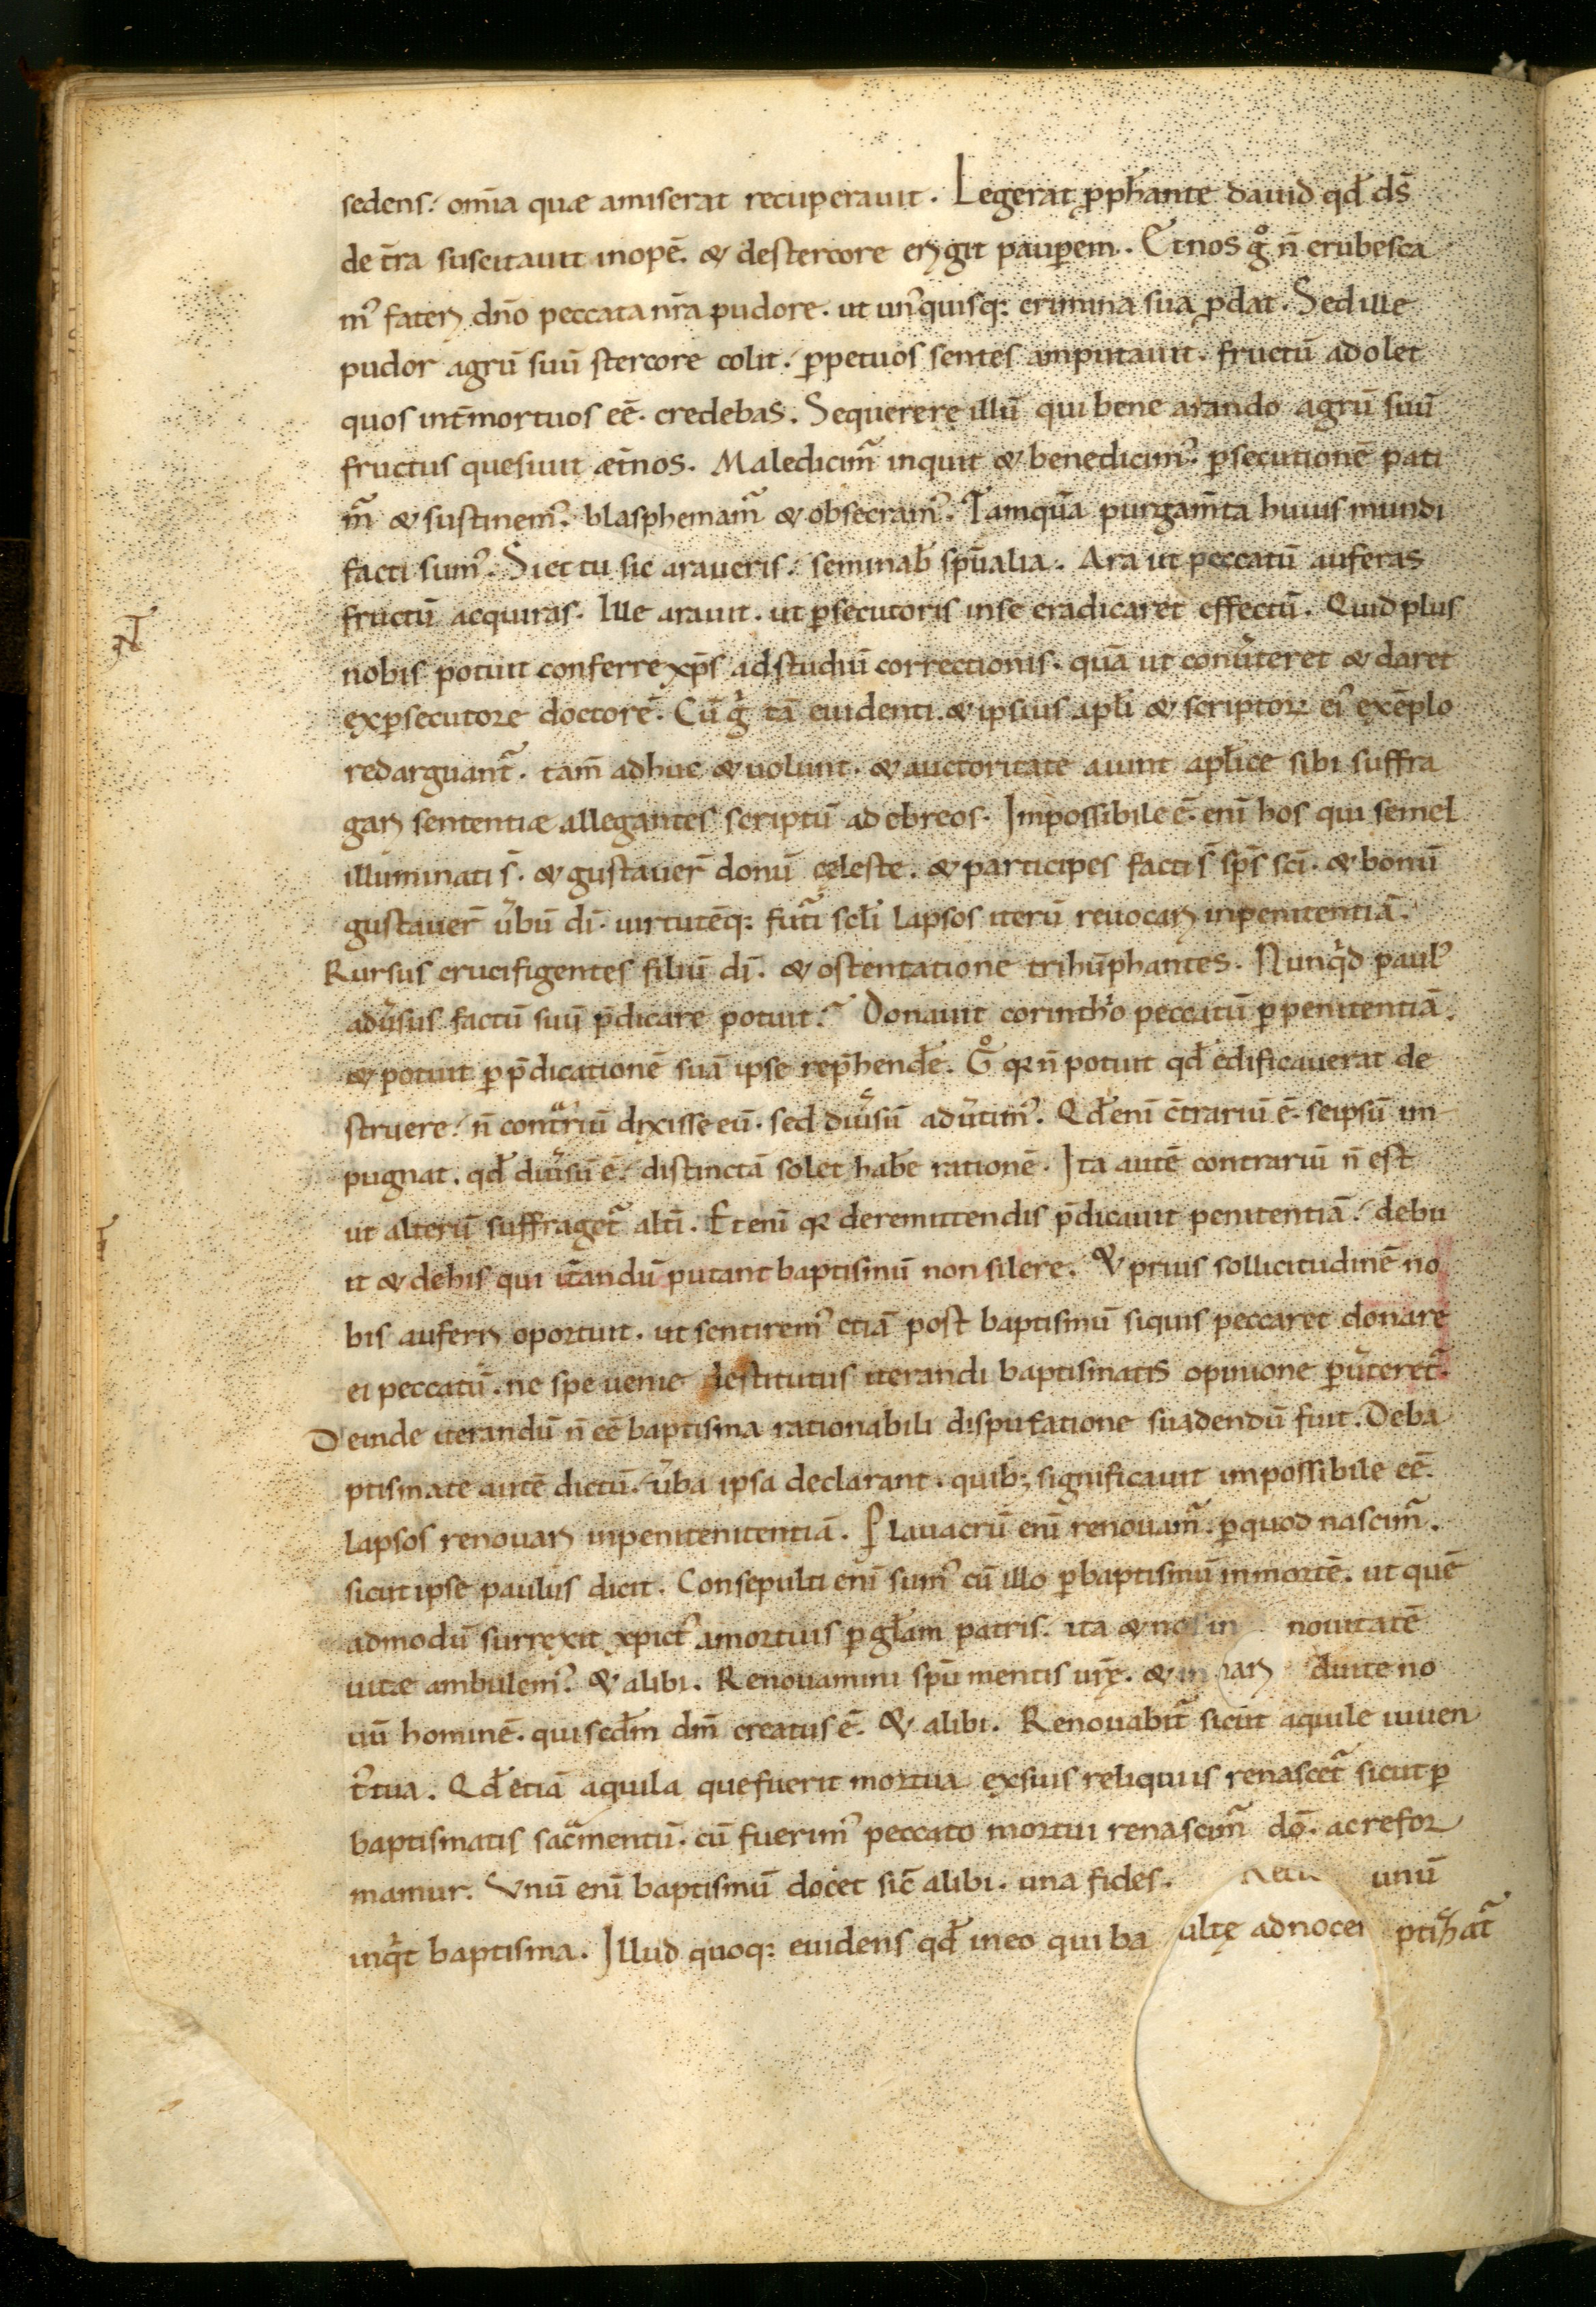 sedens. om̅ia quæ amiserat recuperauit. Legerat ꝓph̅ante dauid qd̅ ds̅
de t̅ra suscitauit inope̅. & destercore erigit paup̲em. Et nos gͦ n̅ erubesca
mꝰ fateri dn̅o peccata nr̅a pudore. ut unꝰquisq: crimina sua ꝓdat. Sed ille
pudor agru̅ suu̅ stercore colit. p̲petuos sentes amputauit. fructu̅ adolet
quos int̅mortuos ee̅. credebas. Sequerere illu̅ qui bene arando agru̅ suu̅
fructus quesiuit æt̅nos. Maledicim᷑ inquit & benedicimꝰ. p̲secutione̅ pati
m᷑ & sustinemꝰ. blasphemam᷑ & obsecramꝰ. Tamqua̅ purgam̅ta huius mundi
facti sumꝰ. Si et tu sic araueris. seminab̅ sp̅ualia. Ara ut peccatu̅ auferas
fructu̅ acquiras. Ille arauit. ut p̲secutoris inse eradicaret effectu̅. Quid plus
nobis potuit conferre xp̅s adstudiu̅ correctionis. qua̅ ut conu̓teret & daret
exp̲secutore doctore̅. Cu̅ gͥ ta̅ euidenti. & ipsius apl̅i & scriptoꝝ eiꝰ exe̅plo
redarguant᷑. tam̅ adhuc & uolunt. & auctoritate aiunt apl̅ice sibi suffra
gari sententiæ allegantes scriptu̅ ad ebreos. Impossibile e̅. eni̅ hos qui semel
illuminati s̅. & gustauer̅ donu̅ cęleste. & participes facti s̅ sp̅s sc̅i. & bonu̅
gustauer̅ u̓bu̅ di̅. uirtute̅q: fut᷑i scl̅i lapsos iteru̅ reuocari inpenitentia̅.
Rursus crucifigentes filiu̅ di̅. & ostentatione trihu̅phantes. Nunqͥd paulꝰ
adu̓sus factu̅ suu̅ p̅dicare potuit? Donauit corinthͦio peccatu̅ p̲penitentia̅.
& potuit p̲p̅dicatione̅ sua̅ ipse rep̅hende̅. Gͦ qꝛ n̅ potuit qd̅ edificauerat de
struere. n̅ contͣriu̅ dixisse eu̅. sed diu̓su̅ adu̓timꝰ. Qd̅ eni̅ c̅trariu̅ e̅. seipsu̅ im
pugnat. qd̅ diu̓su̅ e̅. distincta̅ solet habe̅ ratione̅. Ita aute̅ contrariu̅ n̅ est
ut alteru̅ suffraget᷑ alt̅i. Et eni̅ qꝛ deremittendis p̅dicauit penitentia̅. debu
it & dehis qui it̅andu̅ putant baptismu̅ non silere. & prius sollicitudine̅ no
bis auferri oportuit. ut sentiremꝰ etia̅ post baptismu̅ siquis peccaret donare
ei peccatu̅. ne spe uenie destitutus iterandi baptismatis opinione p̲u̓teret᷑.
Deinde iterandu̅ n̅ ee̅ baptisma rationabili disputatione suadendu̅ fuit. Deba
ptismate aute̅ dictu̅. u̓ba ipsa declarant. quib; significauit impossibile ee̅.
lapsos renouari inpenitenitentia̅. P̲ lauacru̅ eni̅ renouam᷑. p̲quod nascim᷑.
sicut ipse paulus dicit. Consepulti eni̅ sumꝰ cu̅ illo p̲baptismu̅ inmorte̅. ut que̅
admodu̅ surrexit xpictꝰ amortuis p̲ gl̅am patris. ita & nos in nouitate̅
uitæ ambulemꝰ. & alibi. Renouamini sp̅u mentis ur̅ę. & in duite no
uu̅ homine̅. qui secd̅m dm̅ creatus e̅. & alibi. Renouabit᷑ sicut aquile iuuen
tꝰ tua. Qd̅ etia̅ aquila quefuerit mortua exsuis reliquiis renascet᷑ sicut p̲
baptismatis sac᷑mentu̅. cu̅ fuerimꝰ peccato mortui renascim᷑ do̅. ac refor
mamur. Vnu̅ eni̅ baptismu̅ docet sic̅ alibi. una fides. unu̅
inqͥt baptisma. Illud quoq: euidens qd̅ ineo qui ba ptizat᷑
ultę adnocer